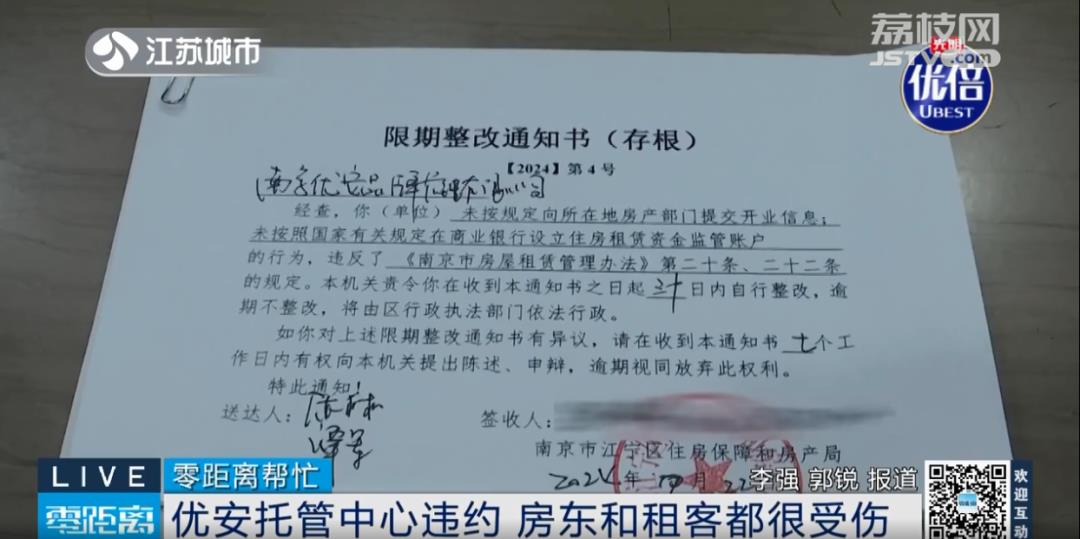 江苏城市
荔枝网
JSTV.com
光明
优倍
UBEST
限期整改通知书（存根）
【2024】第4号
南京优安品
经查，你（单位）未按规定向所在地房产部门提交开业信息；
未按照国家有关规定在商业银行设立住房租赁资金监管账户
的行为，违反了《南京市房屋租赁管理办法》第二十条、二十二条
的规定。本机关责令你在收到本通知书之日起 日内自行整改，逾
期不整改，将由区行政执法部门依法行政。
如你对上述限期整改通知书有异议，请在收到本通知书 七个工
作日内有权向本机关提出陈述、申辩，逾期视同放弃此权利。
特此通知！
送达人：
签收人：
南京市江宁区住房保障和房产局
2024年 月22
LIVE
零距离帮忙
李强 郭锐 报道
零距离
优安托管中心违约 房东和租客都很受伤
欢迎互动